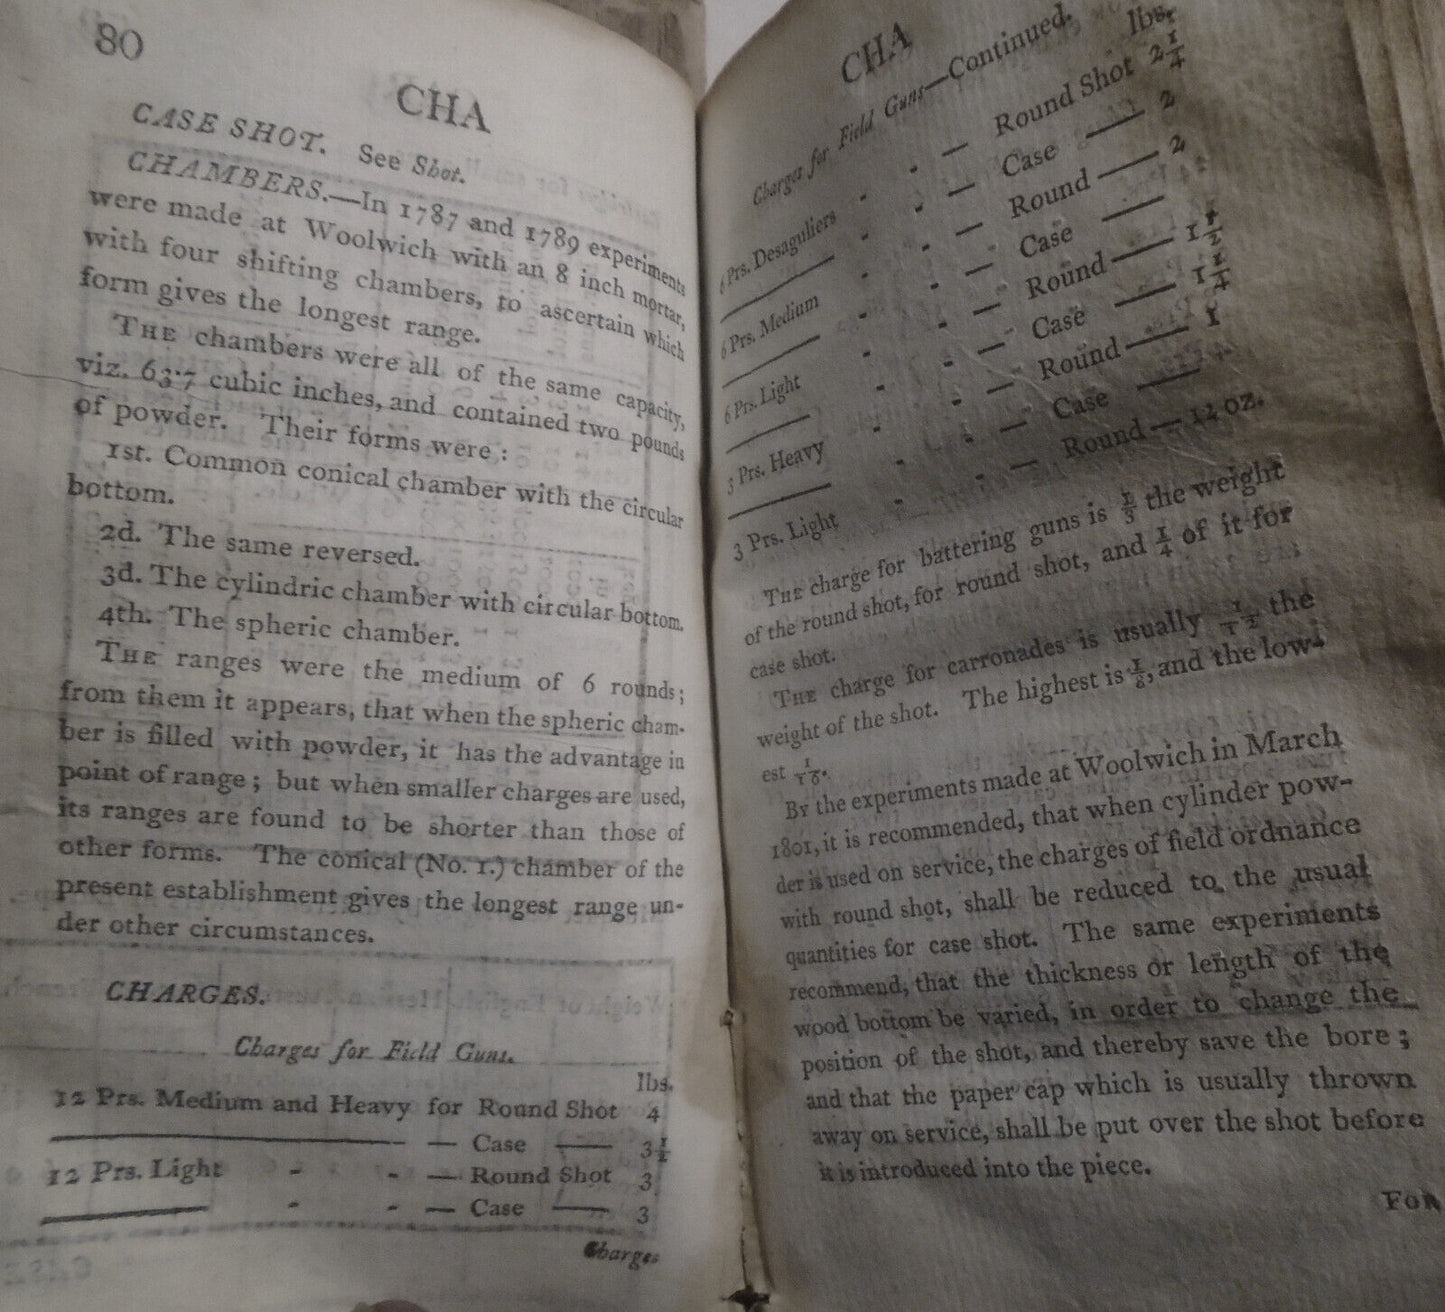 80
CHA
CASE SHOT. See Shot.
CHAMBERS.—In 1787 and 1789 experiments
were made at Woolwich with an 8 inch mortar,
with four shifting chambers, to ascertain which
form gives the longest range.
THE chambers were all of the same capacity,
viz. 63·7 cubic inches, and contained two pounds
of powder. Their forms were:
1st. Common conical chamber with the circular
bottom.
2d. The same reversed.
3d. The cylindric chamber with circular bottom.
4th. The spheric chamber.
THE ranges were the medium of 6 rounds;
from them it appears, that when the spheric cham-
ber is filled with powder, it has the advantage in
point of range; but when smaller charges are used,
its ranges are found to be shorter than those of
other forms. The conical (No. 1.) chamber of the
present establishment gives the longest range un-
der other circumstances.
CHARGES.
Charges for Field Guns.
lbs.
12 Prs. Medium and Heavy for Round Shot 4
——— — Case —— 3½
12 Prs. Light - - — Round Shot 3
——— - - — Case —— 3
Charges
CHA
Charges for Field Guns—Continued.
lbs.
6 Prs. Desaguliers - - — Round Shot 2¼
——— - - — Case —— 2
6 Prs. Medium - - — Round —— 2
——— - - — Case ——
6 Prs. Light - - — Round —— 1½
——— - - — Case —— 1¼
3 Prs. Heavy - - — Round —— 1
——— - - — Case ——
3 Prs. Light - - — Round — oz.
THE charge for battering guns is ⅓ the weight
of the round shot, for round shot, and ¼ of it for
case shot.
THE charge for carronades is usually 1/12 the
weight of the shot. The highest is ⅛, and the low-
est 1/16.
BY the experiments made at Woolwich in March
1801, it is recommended, that when cylinder pow-
der is used on service, the charges of field ordnance
with round shot, shall be reduced to the usual
quantities for case shot. The same experiments
recommend, that the thickness or length of the
wood bottom be varied, in order to change the
position of the shot, and thereby save the bore;
and that the paper cap which is usually thrown
away on service, shall be put over the shot before
it is introduced into the piece.
FOR